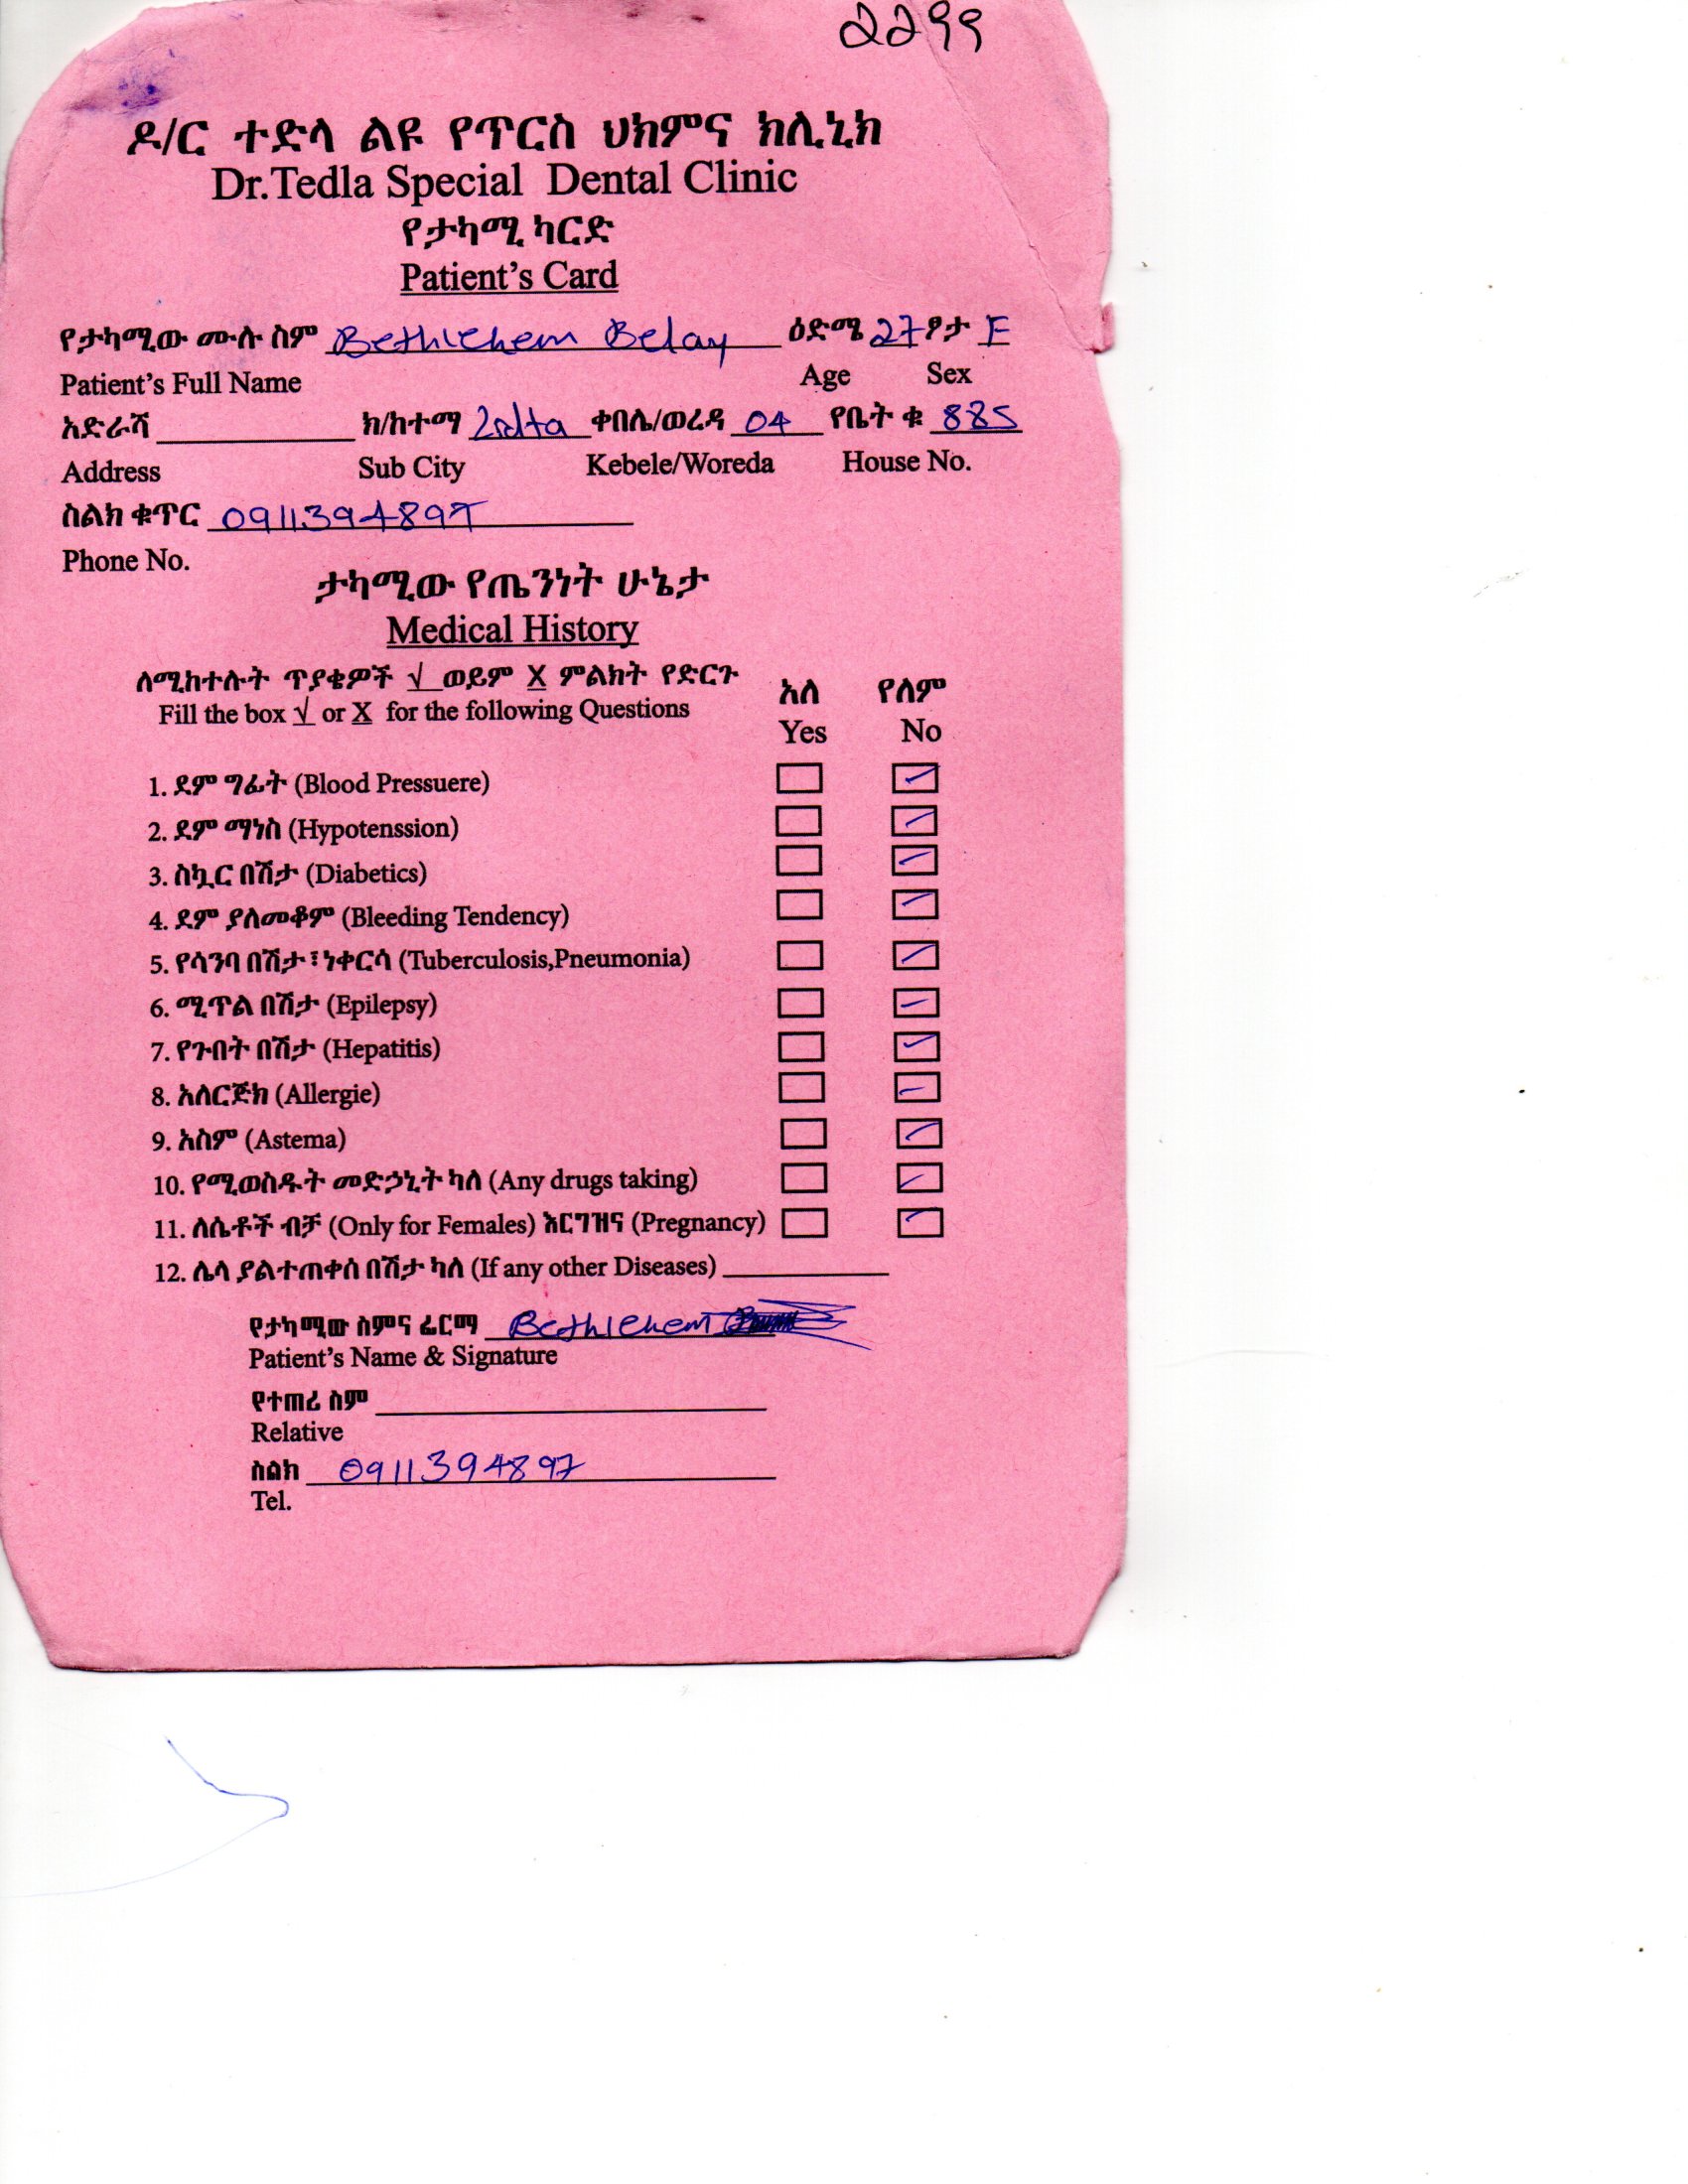 2299
ዶ/ር ተድላ ልዩ የጥርስ ህክምና ክሊኒክ
Dr.Tedla Special Dental Clinic
የታካሚ ካርድ
Patient's Card
የታካሚው ሙሉ ስም Bethlehem Belay ዕድሜ 27 ፆታ F
Patient's Full Name Age Sex
አድራሻ ክ/ከተማ ቀበሌ/ወረዳ 04 የቤት ቁ 885
Address Sub City Kebele/Woreda House No.
ስልክ ቁጥር 0911394897
Phone No.
ታካሚው የጤንነት ሁኔታ
Medical History
ለሚከተሉት ጥያቄዎች √ ወይም X ምልክት የድርጉ አለ የለም
Fill the box √ or X for the following Questions Yes No
1. ደም ግፊት (Blood Pressuere)
2. ደም ማነስ (Hypotenssion)
3. ስኳር በሽታ (Diabetics)
4. ደም ያለመቆም (Bleeding Tendency)
5. የሳንባ በሽታ፣ነቀርሳ (Tuberculosis,Pneumonia)
6. ሚጥል በሽታ (Epilepsy)
7. የጉበት በሽታ (Hepatitis)
8. አለርጅክ (Allergie)
9. አስም (Astema)
10. የሚወስዱት መድኃኒት ካለ (Any drugs taking)
11. ለሴቶች ብቻ (Only for Females) እርግዝና (Pregnancy)
12. ሌላ ያልተጠቀሰ በሽታ ካለ (If any other Diseases)
የታካሚው ስምና ፊርማ Bethlehem
Patient's Name & Signature
የተጠሪ ስም
Relative
ስልክ 0911394897
Tel.